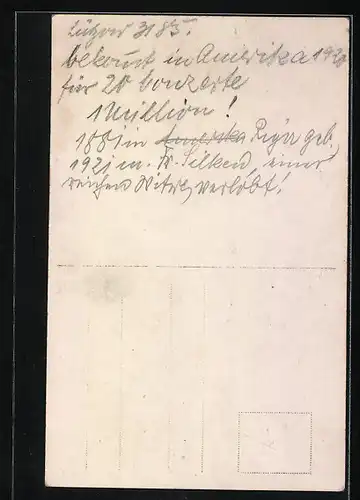 Lützow 3185.
bekommt in Amerika 1920
für 20 Conzerte
1 Million!
1881 in Amerika Riga geb.
1921 m. Fr. Silken, einer
reichen Witwe, verlobt!